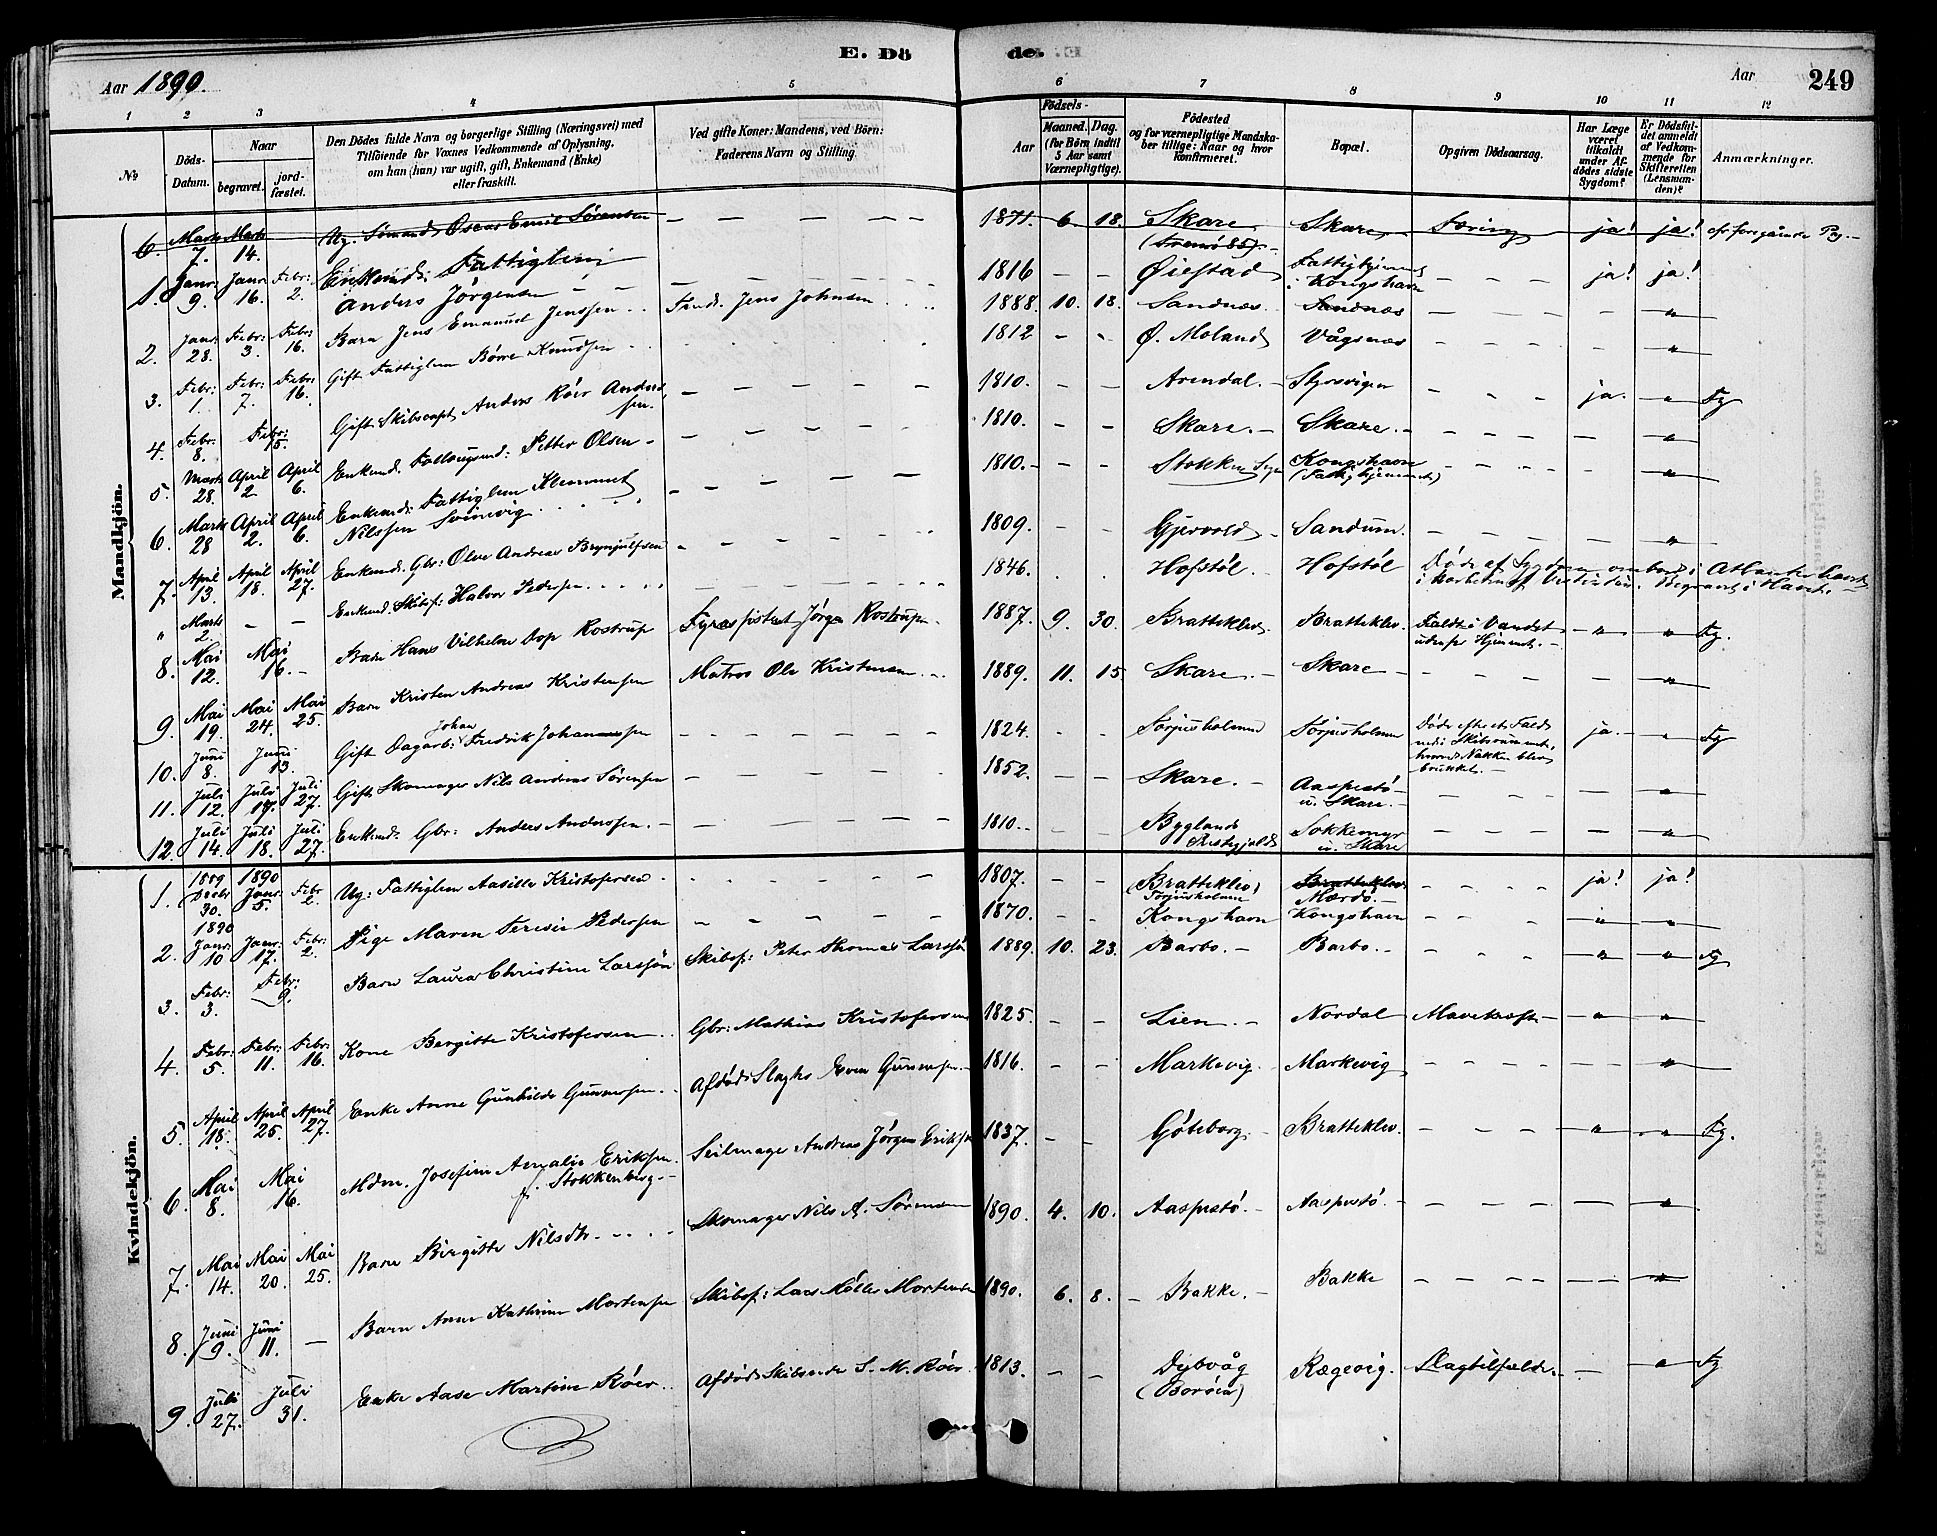 E. Dö
de.
Aar 1890.
Aar
249
1 2 3 4 5 6 7 8 9 10 11 12
No
Döds-Datum.
Naar
begravet.
jord-fæstet.
Den Dödes fulde Navn og borgerlige Stilling (Næringsvei) med Tilföiende for Voxnes Vedkommende af Oplysning, om han (hun) var ugift, gift, Enkemand (Enke) eller fraskilt.
Ved gifte Koner: Mandens, ved Börn: Faderens Navn og Stilling.
Födsels-
Aar
Maaned. Dag.
(for Börn indtil 5 Aar samt Værnepligtige).
Födested
og for værnepligtige Mandskaber tillige: Naar og hvor Konfirmeret.
Bopæl.
Opgiven Dödsaarsag.
Har Læge været tilkaldt under Afdödes sidste Sygdom?
Er Dödsfaldet anmeldt af Vedkommende for Skifteretten (Lensmanden)?
Anmærkninger.
Mandkjön.
6. Marts 7. Marts 14. Ug. Sømand Oscar Emil Sørensen — 1871 6 18. Skare (Tromö 85) — Skare Tæring ja! ja! cfr foregående Pg. —
1. Janr. 9. Janr. 16. Febr: 2. Enkemd: Fattiglem Anders Jørgensen — 1816 — — Øiestad Fattighjemmet i Kongshavn — ja! ja!
2. Janr 28. Febr: 3. Febr: 16. Barn Jens Emanuel Jenssen Jens Johnsen 1888. 10. 18. Sandnæs Sandnæs — "
3. Febr: 1. Febr: 7. Febr: 16. Gift Fattiglem Börre Knudsen 1812 — — Ø. Moland Vågsnæs — "
4. Febr: 8. Febr: 15. Gift Skibscapt Anders Röer Anderssen. — 1810. — — Arendal. — Styrsvigen — ja. " Fg
5. Marts 28. April 2 April 6. Enkemd. Petter Olsen — 1810. — Skare. — Skare. — "
6. Marts 28 April 2. April 6. Enkemd: Fattiglem Klemmet Nilssen Svinevig 1810. — — Stokken Kongshavn (Fattighjemmet) — "
7. April 13. April 18. April 27. Enkemd. Gbr: Olve Andreas Brynjulfsen — 1809. — — Gjervold — Sandum. — "
" Marts 2. — — Enkemd. Skibsf: Halvor Pedersen 1846. Hofstöl. Hofstöl Döde af Sygdom ombord i Atlanterhavet i Nærheden af Vestindien. Begravet i Havet. —
8. Mai 12. Mai 16. — Barn Hans Vilhelm Dop Rostrup Fyrassistent Jörgen Rostrup. 1887. 9. 30. Bratteklev Bratteklev. Faldt i Vandet udenfor Hjemmet. — " " Fg.
9. Mai 19. Mai 24. Mai 25. Barn Kristen Andreas Kristensen Matros Ole Kristensen 1889. 11. 15. Skare. — Skare — "
10. Juni 8. Juni 13. Gift Dagarb: Johan Fredrik Johannssen — 1824. — — Torjusholmen Torjusholmen Döde efter et Fald ned i Skibsrummet, hvorved Nakken blev brukket. — ja. — " Fg
11. Juli 12. Juli 17. Juli 27. Gift Skomager Nils Andreas Sørensen — 1852. — — Skare. — Aaspestö u. Skare. — "
12. Juli 14. Juli 18. Juli 27. Enkemd. Gbr: Anders Anderssen. — 1810. — Byglands Prestegjeld Sokkemyr u. Skare — "
Kvindekjön.
1. 1889 Decbr 30. 1890 Janr. 5. Febr 2. Ug: Fattiglem Aasille Kristofersen — 1807. — — Bratteklev Torjusholmen Bratteklev. Mærdö. — ja! ja!
2. 1890 Janr: 10 Janr: 17. Febr: 2. Pige Maren Teresie Pedersen — 1870. — — Kongshavn Kongshavn — " "
3. Febr: 3. Febr: 9. Barn Laura Christine Larssön Skibsf: Peter Thomas Larssön 1889. 10. 23. Barbo. — Barbo. — " " Fg
4. Febr: 5. Febr: 11. Febr: 16. Kone Bergitte Kristofersen Gbr: Mathias Kristofersen 1825. — — Lien. — Nordal Mavekræft — " "
5. April 18. April 25. April 27. Enke Anne Gunhilde Gunnersen. Afdöd Slagter Even Gunnersen. 1816. — — Markevig. Markevig — "
6. Mai 8. Mai 16. Mdm. Josefine Amalie Eriksen. f. Stokkenberg — Seilmager Andreas Jörgen Eriksen 1837. — — Göteborg. — Bratteklev. — " " Fg.
7. Mai 14. Mai 20. Mai 25. Barn Birgitte Nilsdtr. Skomager Nils A. Sørensen 1890. 4. 10. Aaspestö. — Aaspestö. — "
8. Juni 9. Juni 11. — Barn Anne Kathrine Mortensen Skibsf: Lars Möller Mortensen 1890. 6. 8. — Bakke. — Bakke — "
9. Juli 27. Juli 31. Enke Aase Martine Röer. Afdöd S. M. Röer 1813. — — Dybvåg (Boröen) Rægevig. Slagtilfælde. — " Fg